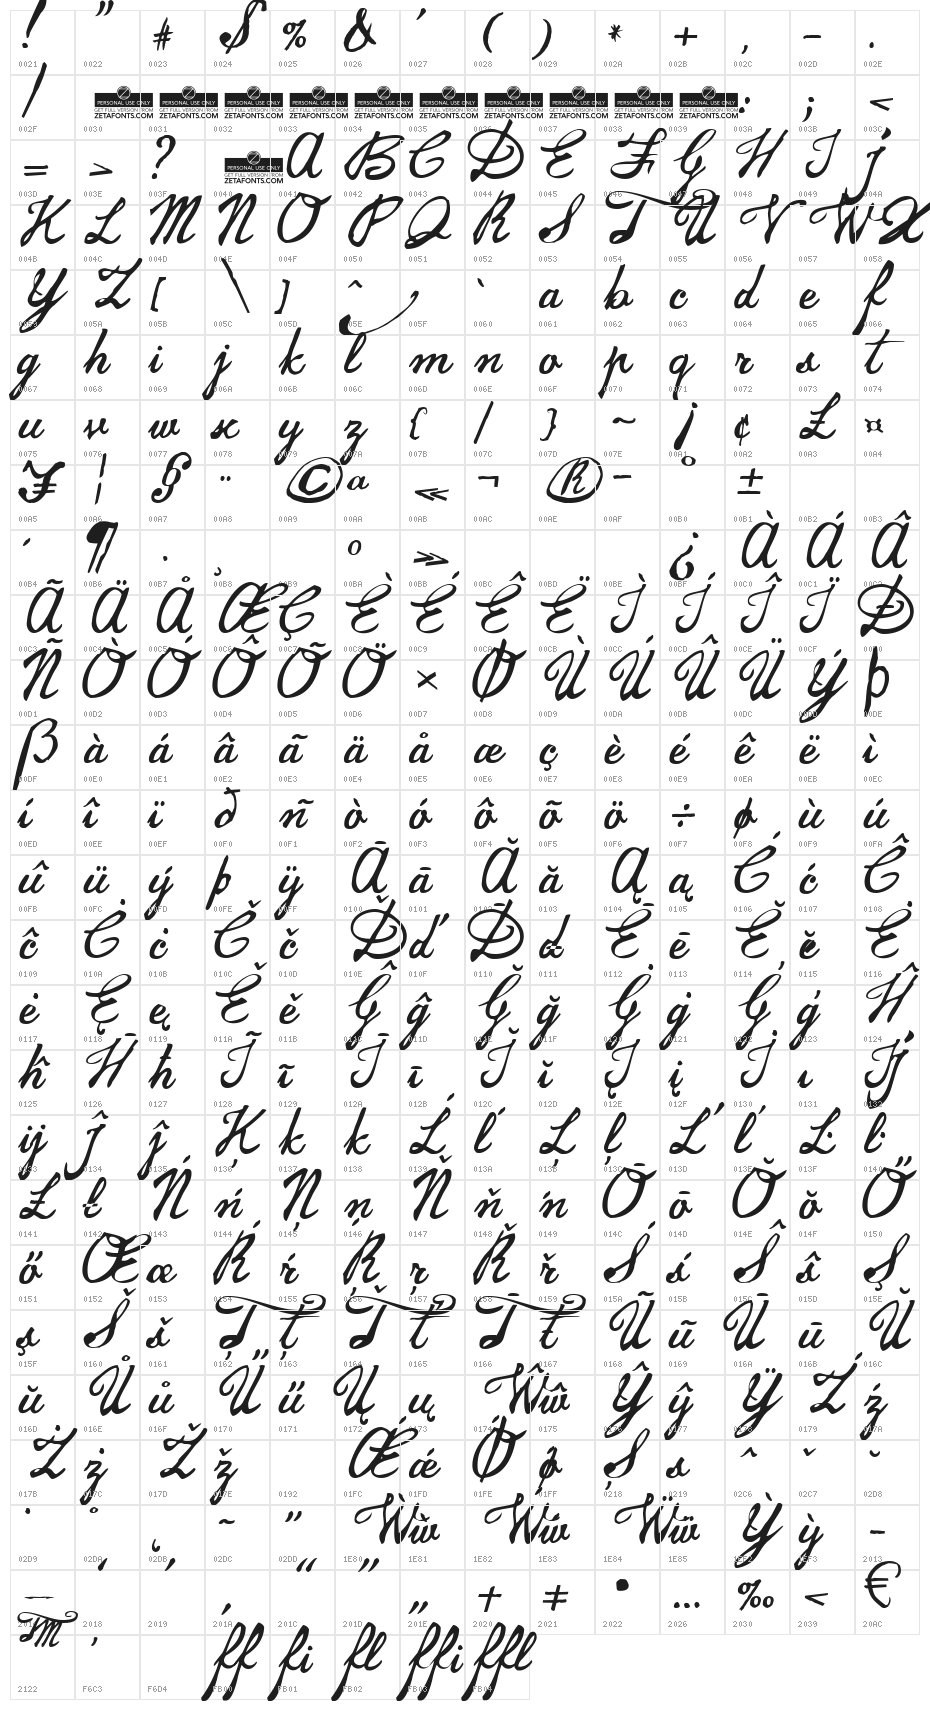 ! " # $ % & ' ( ) * + , - .
0021 0022 0023 0024 0025 0026 0027 0028 0029 002A 002B 002C 002D 002E
/ : ; <
PERSONAL USE ONLY PERSONAL USE ONLY PERSONAL USE ONLY PERSONAL USE ONLY PERSONAL USE ONLY PERSONAL USE ONLY PERSONAL USE ONLY PERSONAL USE ONLY PERSONAL USE ONLY PERSONAL USE ONLY
GET FULL VERSION FROM GET FULL VERSION FROM GET FULL VERSION FROM GET FULL VERSION FROM GET FULL VERSION FROM GET FULL VERSION FROM GET FULL VERSION FROM GET FULL VERSION FROM GET FULL VERSION FROM GET FULL VERSION FROM
ZETAFONTS.COM ZETAFONTS.COM ZETAFONTS.COM ZETAFONTS.COM ZETAFONTS.COM ZETAFONTS.COM ZETAFONTS.COM ZETAFONTS.COM ZETAFONTS.COM ZETAFONTS.COM
002F 0030 0031 0032 0033 0034 0035 0036 0037 0038 0039 003A 003B 003C
= > ? A B C D E F G H I J
PERSONAL USE ONLY
GET FULL VERSION FROM
ZETAFONTS.COM
003D 003E 003F 0040 0041 0042 0043 0044 0045 0046 0047 0048 0049 004A
K L M N O P Q R S T U V W X
004B 004C 004D 004E 004F 0050 0051 0052 0053 0054 0055 0056 0057 0058
Y Z [ \ ] ^ _ ` a b c d e f
0059 005A 005B 005C 005D 005E 005F 0060 0061 0062 0063 0064 0065 0066
g h i j k l m n o p q r s t
0067 0068 0069 006A 006B 006C 006D 006E 006F 0070 0071 0072 0073 0074
u v w x y z { | } ~ ¡ ¢ £ ¤
0075 0076 0077 0078 0079 007A 007B 007C 007D 007E 00A1 00A2 00A3 00A4
¥ ¦ § ¨ © ª « ¬ ® ¯ ° ±
00A5 00A6 00A7 00A8 00A9 00AA 00AB 00AC 00AE 00AF 00B0 00B1 00B2 00B3
´ ¶ · ¸ º » ¿ À Á Â
00B4 00B6 00B7 00B8 00B9 00BA 00BB 00BC 00BD 00BE 00BF 00C0 00C1 00C2
Ã Ä Å Æ Ç È É Ê Ë Ì Í Î Ï Ð
00C3 00C4 00C5 00C6 00C7 00C8 00C9 00CA 00CB 00CC 00CD 00CE 00CF 00D0
Ñ Ò Ó Ô Õ Ö × Ø Ù Ú Û Ü Ý Þ
00D1 00D2 00D3 00D4 00D5 00D6 00D7 00D8 00D9 00DA 00DB 00DC 00DD 00DE
ß à á â ã ä å æ ç è é ê ë ì
00DF 00E0 00E1 00E2 00E3 00E4 00E5 00E6 00E7 00E8 00E9 00EA 00EB 00EC
í î ï ð ñ ò ó ô õ ö ÷ ø ù ú
00ED 00EE 00EF 00F0 00F1 00F2 00F3 00F4 00F5 00F6 00F7 00F8 00F9 00FA
û ü ý þ ÿ Ā ā Ă ă Ą ą Ć ć Ĉ
00FB 00FC 00FD 00FE 00FF 0100 0101 0102 0103 0104 0105 0106 0107 0108
ĉ Ċ ċ Č č Ď ď Đ đ Ē ē Ĕ ĕ Ė
0109 010A 010B 010C 010D 010E 010F 0110 0111 0112 0113 0114 0115 0116
ė Ę ę Ě ě Ĝ ĝ Ğ ğ Ġ ġ Ģ ģ Ĥ
0117 0118 0119 011A 011B 011C 011D 011E 011F 0120 0121 0122 0123 0124
ĥ Ħ ħ Ĩ ĩ Ī ī Ĭ ĭ Į į İ ı Ĳ
0125 0126 0127 0128 0129 012A 012B 012C 012D 012E 012F 0130 0131 0132
ĳ Ĵ ĵ Ķ ķ ĸ Ĺ ĺ Ļ ļ Ľ ľ Ŀ ŀ
0133 0134 0135 0136 0137 0138 0139 013A 013B 013C 013D 013E 013F 0140
Ł ł Ń ń Ņ ņ Ň ň ŉ Ō ō Ŏ ŏ Ő
0141 0142 0143 0144 0145 0146 0147 0148 0149 014C 014D 014E 014F 0150
ő Œ œ Ŕ ŕ Ŗ ŗ Ř ř Ś ś Ŝ ŝ Ş
0151 0152 0153 0154 0155 0156 0157 0158 0159 015A 015B 015C 015D 015E
ş Š š Ţ ţ Ť ť Ŧ ŧ Ũ ũ Ū ū Ŭ
015F 0160 0161 0162 0163 0164 0165 0166 0167 0168 0169 016A 016B 016C
ŭ Ů ů Ű ű Ų ų Ŵ ŵ Ŷ ŷ Ÿ Ź ź
016D 016E 016F 0170 0171 0172 0173 0174 0175 0176 0177 0178 0179 017A
Ż ż Ž ž Ǽ ǽ Ǿ ǿ Ș ș ˆ ˇ ˘
017B 017C 017D 017E 0192 01FC 01FD 01FE 01FF 0218 0219 02C6 02C7 02D8
˙ ˚ ˛ ˜ ˝ Ẁ ẁ Ẃ ẃ Ẅ ẅ Ỳ ỳ –
02D9 02DA 02DB 02DC 02DD 1E80 1E81 1E82 1E83 1E84 1E85 1EF2 1EF3 2013
— ‘ ’ ‚ “ ” „ † ‡ • … ‰ ‹ €
2014 2018 2019 201A 201C 201D 201E 2020 2021 2022 2026 2030 2039 20AC
™ , ff fi fl ffi ffl
2122 F6C3 F6D4 FB00 FB01 FB02 FB03 FB04